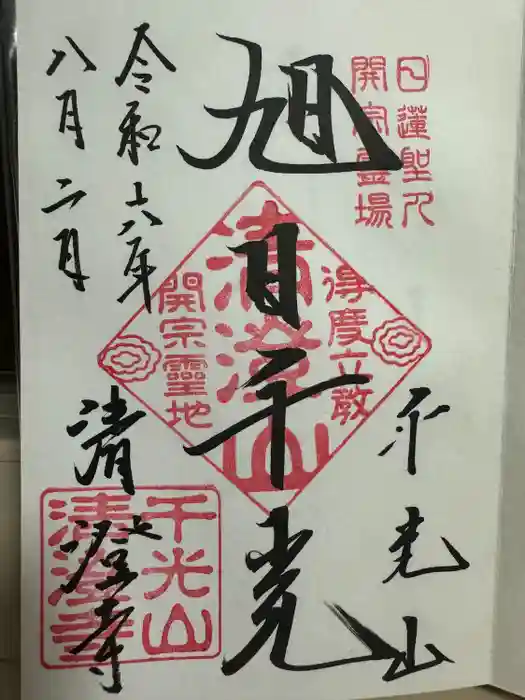 日蓮聖人
開宗霊場
旭日千光
千光山
得度立教
清澄山
開宗靈地
令和六年
八月二日
清澄寺
千光山
清澄寺